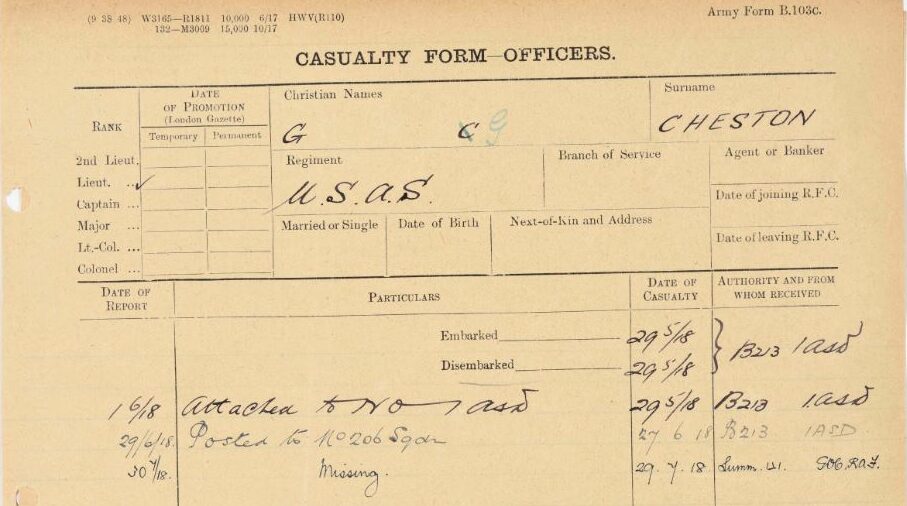 (9 38 48) W3165—R1811 10,000 6/17 HWV(R110)
132—M3009 15,000 10/17
Army Form B.103c.
CASUALTY FORM—OFFICERS.
RANK
DATE
OF PROMOTION
(London Gazette)
Temporary Permanent
Christian Names
G G
Surname
CHESTON
2nd Lieut.
Lieut. ... ✓
Captain ...
Major ...
Lt.-Col. ...
Colonel ...
Regiment
U.S.A.S.
Branch of Service
Agent or Banker
Date of joining R.F.C.
Date of leaving R.F.C.
Married or Single
Date of Birth
Next-of-Kin and Address
DATE OF
REPORT
PARTICULARS
DATE OF
CASUALTY
AUTHORITY AND FROM
WHOM RECEIVED
Embarked 29 5/18
Disembarked 29 5/18 } B213 1 ASD
1 6/18 Attached to No 1 ASD 29 5/18 B213 1.ASD
29/6/18. Posted to No 206 Sqdn 27 6 18 B213 1ASD.
30 7/18. Missing. 29.7.18. Summ. GOC. R.A.F.